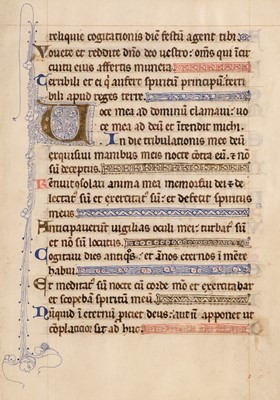 reliquie cogitationis diē festū agent tibi.
Vouete et reddite dño deo vestro: om̄s qui ī cir
cuitu eius affertis munera.
Terribili et ei q̇ aufert spiritū principū: terri
bili apud reges terre.
Voce mea ad dominū clamaui: uo
ce mea ad deū et ītendit michi.
In die tribulationis mee deū
exquisiui manibus meis nocte cōtra eū: ⁊ nō
sū deceptus.
Renuit ɔsolari anima mea memor fui dei ⁊ de
lectat᷒ sū et exercitat᷒ sū: et defecit spiritus
meus.
Anticipauerūt uigilias oculi mei: turbat᷒ sū
et nō sū locutus.
Cogitaui dies antiq̊s: et ānos eternos ī mēte
habui.
Et meditat᷒ sū nocte cū corde mō et exercitabar
et scopebā spiritū meū.
Nūquid ī eternū ꝓiciet deus: aut nō apponet ut
cōplacitior sit ad huc.